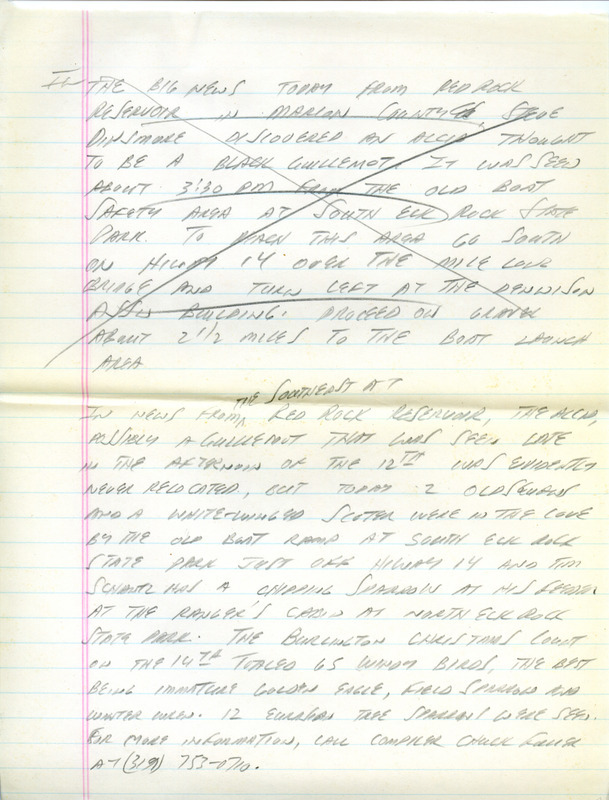 IN THE BIG NEWS TODAY FROM RED ROCK
RESERVOIR IN MARION COUNTY, STEVE
DINSMORE DISCOVERED AN ALCID THOUGHT
TO BE A BLACK GUILLEMOT. IT WAS SEEN
ABOUT 3:30 PM FROM THE OLD BOAT
SAFETY AREA AT SOUTH ELK ROCK STATE
PARK. TO REACH THIS AREA GO SOUTH
ON HIWAY 14 OVER THE MILE LONG
BRIDGE AND TURN LEFT AT THE DENNISON
BUILDING. PROCEED ON GRAVEL
ABOUT 2 1/2 MILES TO THE BOAT LAUNCH
AREA
THE SOUTHEAST AT
IN NEWS FROM RED ROCK RESERVOIR, THE ALCID,
POSSIBLY A GUILLEMOT THAT WAS SEEN LATE
IN THE AFTERNOON OF THE 12TH WAS EVIDENTLY
NEVER RELOCATED, BUT TODAY 2 OLDSQUAWS
AND A WHITE-WINGED SCOTER WERE IN THE COVE
BY THE OLD BOAT RAMP AT SOUTH ELK ROCK
STATE PARK JUST OFF HIWAY 14 AND TIM
SCHANTZ HAS A CHIPPING SPARROW AT HIS FEEDER
AT THE RANGER'S CABIN AT NORTH ELK ROCK
STATE PARK. THE BURLINGTON CHRISTMAS COUNT
ON THE 14TH TOTALED 65 WINDY BIRDS, THE BEST
BEING IMMATURE GOLDEN EAGLE, FIELD SPARROW AND
WINTER WREN. 12 EURASIAN TREE SPARROWS WERE SEEN.
FOR MORE INFORMATION, CALL COMPILER CHUCK FULLER
AT (319) 753-0710.